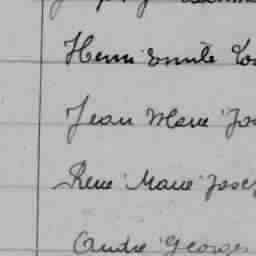 Henri Emile
Jean Marie
Rene Marie Josep
Andre Georges